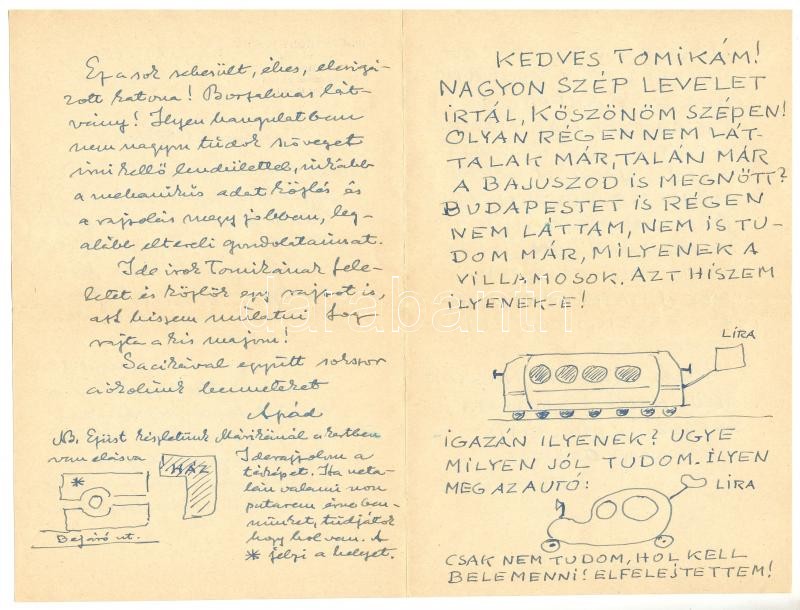 Ez a sok sebesült, éhes, elcsigá-
zott katona! Borzalmas lát-
vány! Ilyen hangulatban
nem nagyon tudok szöveget
írni kellő lendülettel, inkább
a mechanikus adat közlés és
a rajzolás megy jobban, leg-
alább eltereli gondolataimat.
Ide írok Tomikának fele-
letet és közlök egy rajzot is,
azt hiszem mulatni fog
rajta a kis majom!
Sacikával együtt sokszor
csókolunk benneteket
Apád
NB. Ezüst készletünk Márikánál a kertben
van elásva
Iderajzolom a
térképet. Ha neta-
lán valami non
putarem érne ben-
nünket, tudjátok
hogy hol van. A
* jelzi a helyet.
*
HÁZ
Bejáró út.
KEDVES TOMIKÁM!
NAGYON SZÉP LEVELET
ÍRTÁL, KÖSZÖNÖM SZÉPEN!
OLYAN RÉGEN NEM LÁT-
TALAK MÁR, TALÁN MÁR
A BAJUSZOD IS MEGNŐTT?
BUDAPESTET IS RÉGEN
NEM LÁTTAM, NEM IS TU-
DOM MÁR, MILYENEK A
VILLAMOSOK. AZT HISZEM
ILYENEK-E!
LÍRA
IGAZÁN ILYENEK? UGYE
MILYEN JÓL TUDOM. ILYEN
MEG AZ AUTÓ:
LÍRA
CSAK NEM TUDOM, HOL KELL
BELEMENNI! ELFELEJTETTEM!
darabanth